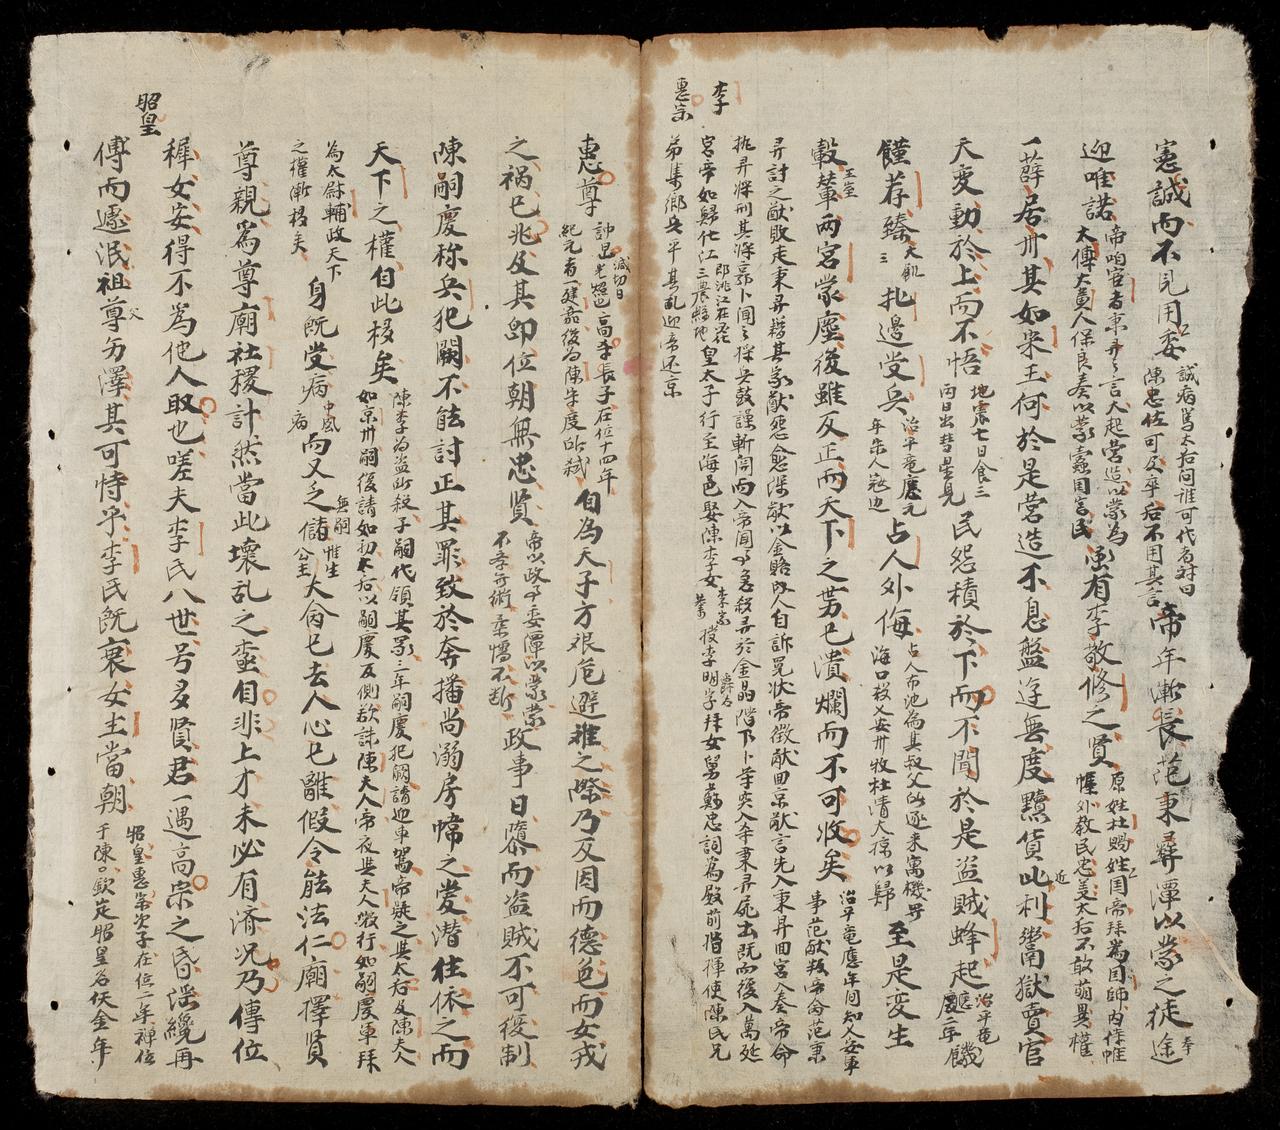 憲誠而不見用委
誠病篤太后問誰可代者對曰
陳忠佐可及卒后不用其言
帝年漸長范秉彛潭以蒙之徒
迎唯諾
帝咱宦者秉彛之言大起營造以蒙為
太傅大黃人保良奏以蒙蠹国害民
雖有李敬修之賢
原姓杜賜姓国帝拜為国師内侍帷
幄外教民忠美太后不敢萌異權
薛居州其如宋王何於是营造不息盤逰無度黷貨近利鬻獄賣官
天变動於上而不悟
地震七日食三
両日出彗星見
民怨積於下而不聞於是盗賊蜂起
治平竜
應年
饑
饉荐臻
大飢
三
扎邊受兵
治平竜應元
年宋人寇边
占人外侮
占人布池為其叔父所逐来寓機
海口殺乂安州牧杜清大掠以歸
至是变生
轂輦
两宮蒙塵後雖反正而天下之势已潰爛而不可收矣
治平竜應年間知乂安軍
事范猷叛帝命范秉
彛討之猷敗走秉彛籍其家猷怨愈深猷以金賂内人自訴冤状帝徵猷回京猷言先入秉彛回宮入奏帝命
執彛将刑其将郭卜聞之採兵鼓譟斬関而入帝聞事急殺彛於金晶階下卜等突入奉秉彛屍出既而復入萬延
宮帝如歸化江
即洮江在
三農縣地
皇太子行至海邑娶陳李女
授李明字爵
拜女舅蘇忠詞為殿前指揮使陳氏兄
弟集鄉兵平其乱迎帝还京
李
惠宗
惠尊
諱旵高宗長子在位十四年
紀元者一建嘉後为陳守度所弑
自為天子方艰危避難之際乃又因而德色而女戎
之禍已兆及其即位朝無忠賢
帝以政事委潭以蒙蒙
不学無術柔懦不断
政事日隳而盗賊不可復制
陳嗣慶称兵犯闕不能討正其罪致於奔播尚溺房幃之愛潜往依之而
天下之權自此移矣
陳李为盗所殺子嗣代領其眾三年嗣慶犯闕請迎車駕帝疑之與太后及陳夫人
如京州嗣後請如初太后以嗣慶反側欲誅陳夫人帝夜與夫人微行如嗣慶軍拜
為太尉輔政天下
之權漸移矣
身既受病
中風
病
而又乏儲
無嗣
惟生
公主
大命已去人心已離假令能法仁廟擇賢
尊親為尊廟社稷計然當此壞乱之盡自非上才未必有济况乃傳位
稺女安得不為他人取也嗟夫李氏八世号多賢君一遇高宗之昏淫纔再
傅而遽泯祖尊功澤其可恃乎李氏既衰女主當朝
昭皇惠宗次子在位二年禅位
于陳欽定昭皇名佛金年
昭皇